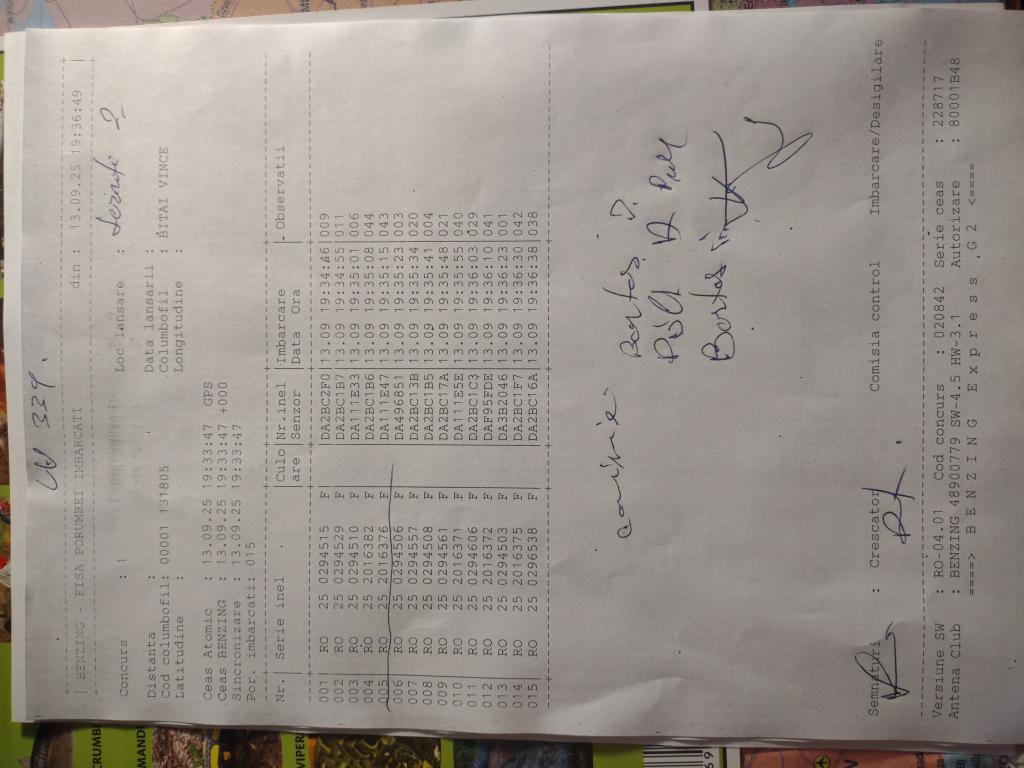 339.
| BENZING - FISA PORUMBEI IMBARCATI din : 13.09.25 19:36:49 |
Concurs : 1 Loc lansare :
Distanta : Data lansarii :
Cod columbofil: 00001 131805 Columbofil : BITAI VINCE
Latitudine : Longitudine :
Ceas Atomic : 13.09.25 19:33:47 GPS
Ceas BENZING : 13.09.25 19:33:47 +000
Sincronizare : 13.09.25 19:33:47
Por. imbarcati: 015
Nr. | Serie inel | Culo | Nr.inel | Imbarcare | Observatii
are | Senzor | Data Ora
001 | RO 25 0294515 F | DA2BC2F0 | 13.09 19:34:46 | 009
002 | RO 25 0294529 F | DA2BC1B7 | 13.09 19:34:55 | 011
003 | RO 25 0294510 F | DA111E33 | 13.09 19:35:01 | 006
004 | RO 25 2016382 F | DA2BC1B6 | 13.09 19:35:08 | 044
005 | RO 25 2016376 F | DA111E47 | 13.09 19:35:15 | 043
006 | RO 25 0294506 F | DA496851 | 13.09 19:35:23 | 003
007 | RO 25 0294557 F | DA2BC13B | 13.09 19:35:34 | 020
008 | RO 25 0294508 F | DA2BC1B5 | 13.09 19:35:41 | 004
009 | RO 25 0294561 F | DA2BC17A | 13.09 19:35:48 | 021
010 | RO 25 2016371 F | DA111E5E | 13.09 19:35:55 | 040
011 | RO 25 0294606 F | DA2BC1C3 | 13.09 19:36:03 | 029
012 | RO 25 2016372 F | DAF95FDE | 13.09 19:36:10 | 041
013 | RO 25 0294503 F | DA3B2046 | 13.09 19:36:23 | 001
014 | RO 25 2016375 F | DA2BC1F7 | 13.09 19:36:30 | 042
015 | RO 25 0296538 F | DA2BC16A | 13.09 19:36:38 | 038
Semnaturi : Crescator Comisia control Imbarcare/Desigilare
Versiune SW : RO-04.01 Cod concurs : 020842 Serie ceas : 228717
Antena Club : BENZING 48900779 SW-4.5 HW-3.1 Autorizare : 80001B48
====> B E N Z I N G E x p r e s s . G 2 <====